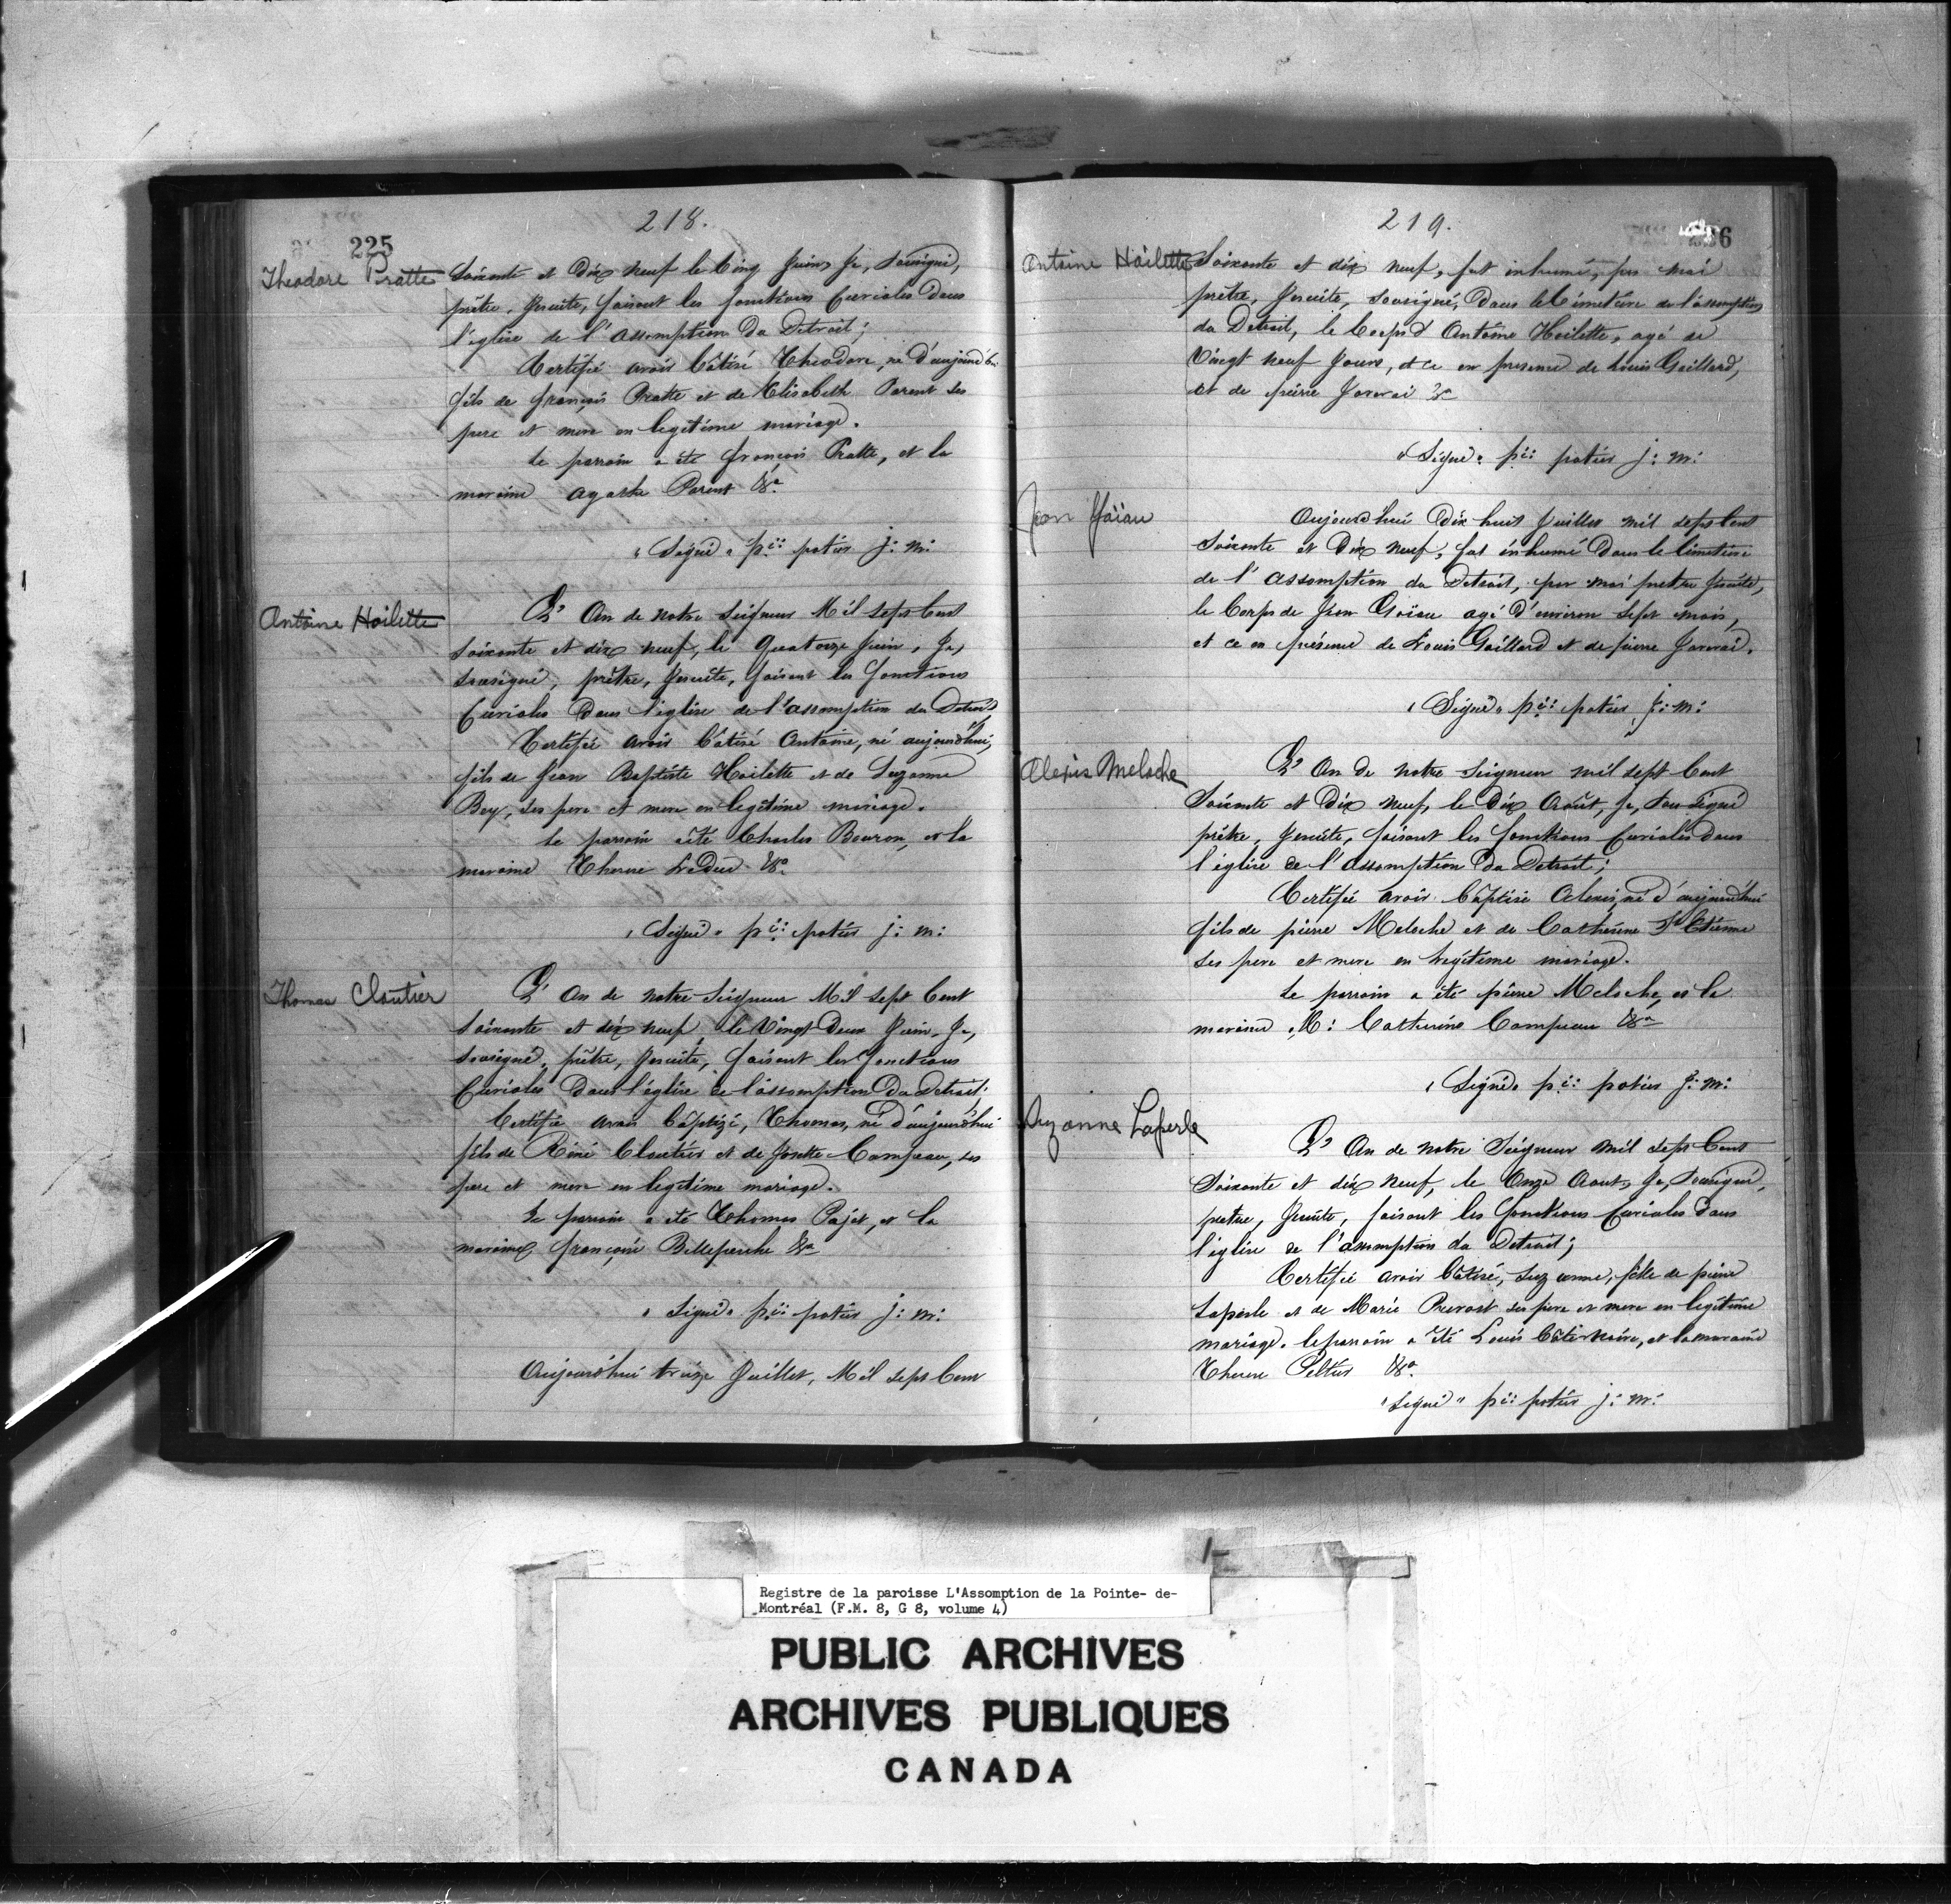 218.
225
Theodore Pratte
Soixante et Dix neuf le Cinq Juin, Je, Sousigné,
prêtre, Jesuite, faisant les fonctions Curiales dans
l'église de l'assomption du Detroit;
Certifie avoir bâtisé Theodore, né d'aujourd'hui
fils de françois Pratte et de Elisabeth Parent ses
pere et mere en legitime mariage.
Le parrain a été françois Pratte, et la
maraine agathe Parent &a
"Signé" pre: potier j: m:
Antoine Hoilette
L'An de notre Seigneur Mil sept Cent
soixante et dix neuf, le Quatorze Juin, Je,
sousigné, prêtre, Jesuite, faisant les fonctions
Curiales dans l'église de l'assomption du Detroit
Certifie avoir bâtisé Antoine, né aujourd'hui,
fils de Jean Baptiste Hoilette et de Suzanne
Bey, ses pere et mere en legitime mariage.
Le parrain a été Charles Bouron, et la
maraine Therese LeDuc &a
"Signé" pre: potier j: m:
Thomas Cloutier
L'An de notre Seigneur Mil sept Cent
soixante et dix neuf, le Vingt Deux Juin, Je,
sousigné, prêtre, Jesuite, faisant les fonctions
Curiales Dans l'église de l'assomption du Detroit;
Certifie avoir bâptizé, Thomas, né d'aujourd'hui
fils de René Cloutier et de Josette Campeau, ses
pere et mere en legitime mariage.
Le parrain a été Thomas Pajot, et la
maraine françoise Belleperche &a
"Signé" pre: potier j: m:
Aujourd'hui treize Juillet, Mil sept Cent
219.
Antoine Hoilette
Soixante et dix neuf, fut inhumé, par moi
prêtre, Jesuite, sousigné, Dans le Cimetiere de l'assomption
du Detroit, le Corps d'Antoine Hoilette, agé de
Vingt neuf Jours, et ce en presence de Louis Gaillard,
et de pierre Javerai &a
"Signé" pre: potier j: m:
Jean Goïau
Aujourd'hui Dix huit Juillet mil sept Cent
soixante et Dix neuf, fut inhumé Dans le Cimetiere
de l'assomption du Detroit, par moi pretre Jesuite,
le Corps de Jean Goïau agé d'environ sept mois,
et ce en présence de Louis Gaillard et de pierre Javerai.
"Signé" pre: potier, j: m:
Alexis Meloche
L'An de notre Seigneur mil sept Cent
Soixante et Dix neuf, le Dix Août, Je, Sousigné
prêtre, Jesuite, faisant les fonctions Curiales dans
l'église de l'assomption du Detroit;
Certifie avoir bâptisé Alexis, né d'aujourd'hui
fils de pierre Meloche et de Catherine St Etienne
ses pere et mere en legitime mariage.
Le parrain a été pierre Meloche, et la
maraine M: Catherine Campeau &a
"Signé" pre: potier j: m:
Suzanne Laperle
L'An de notre Seigneur mil sept Cent
Soixante et dix neuf, le Onze Aout, Je, Sousigné,
pretre, Jesuite, faisant les fonctions Curiales dans
l'église de l'assomption du Detroit;
Certifie avoir bâtisé, Suzanne, fille de pierre
Laperle et de Marie Prevost ses pere et mere en legitime
mariage. le parrain a été Louis , et la maraine
Therese Peltier &a
"Signé" pre: potier j: m:
Registre de la paroisse L'Assomption de la Pointe- de-
Montréal (F.M. 8, G 8, volume 4)
PUBLIC ARCHIVES
ARCHIVES PUBLIQUES
CANADA